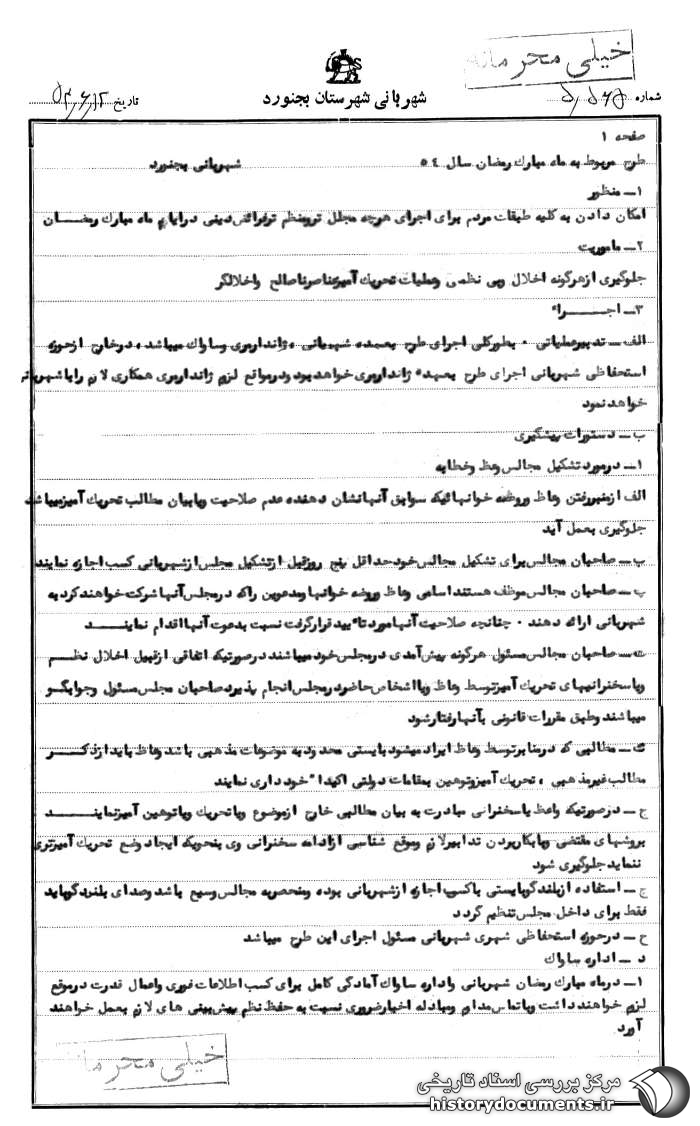 خیلی محرمانه
شهربانی شهرستان بجنورد
شماره
تاریخ ۵۴٫۶٫۱۲
صفحه ۱
طرح مربوط به ماه مبارك رمضان سال ۵۴ شهربانی بجنورد
۱ـ منظور
امکان دادن به کلیه طبقات مردم برای اجرای هرچه مجلل تر و منظم تر فرائض دینی در ایام ماه مبارك رمضـــان
۲ـ ماموریت
جلوگیری از هرگونه اخلال و بی نظمی و عملیات تحریك آمیز عناصر ناصالح و اخلالگر
۳ـ اجـــرا
الف ـ تدبیر عملیاتی ۰ بطور کلی اجرای طرح بعهده شهربانی ، ژاندارمری و ساواك میباشد ، در خارج از حوزه
استحفاظی شهربانی اجرای طرح بعهده ژاندارمری خواهد بود و در مواقع لزوم ژاندارمری همکاری لازم را با شهربانی
خواهد نمود
ب ـ دستورات پیشگیری
۱ـ در مورد تشکیل مجالس وعظ و خطابه
الف از منبر رفتن وعاظ و روضه خوانهائیکه سوابق آنها نشان دهنده عدم صلاحیت و یا بیان مطالب تحریك آمیز میباشد
جلوگیری بعمل آید
ب ـ صاحبان مجالس برای تشکیل مجالس خود حداقل پنج روز قبل از تشکیل مجلس از شهربانی کسب اجازه نمایند
پ ـ صاحبان مجالس موظف هستند اسامی وعاظ و روضه خوانها و مدعوین را که در مجلس آنها شرکت خواهند کرد به
شهربانی ارائه دهند ۰ چنانچه صلاحیت آنها مورد تأیید قرار گرفت نسبت بدعوت آنها اقدام نماینــــد
ت ـ صاحبان مجالس مسئول هرگونه پیش آمدی در مجلس خود میباشند در صورتیکه اتفاقی از قبیل اخلال نظــم
و یا سخنرانیهای تحریك آمیز توسط وعاظ و یا اشخاص حاضر در مجلس انجام پذیرد صاحبان مجلس مسئول و جوابگــو
میباشند و طبق مقررات قانونی با آنها رفتار شود
ث ـ مطالبی که در منابر توسط وعاظ ایراد میشود بایستی محدود به موضوعات مذهبی باشد وعاظ باید از ذکـــر
مطالب غیر مذهبی ، تحریك آمیز و توهین بمقامات دولتی اکیداً خودداری نمایند
ج ـ در صورتیکه واعظ یا سخنرانی مبادرت به بیان مطالبی خارج از موضوع و یا تحریك و یا توهین آمیز نماینــــد
بروشهای مقتضی و با بکار بردن تدابیر لازم و موقع شناسی از ادامه سخنرانی وی بنحویکه ایجاد وضع تحریك آمیزتری
ننماید جلوگیری شود
چ ـ استفاده از بلندگو بایستی با کسب اجازه از شهربانی بوده و منحصر به مجالس وسیع باشد و صدای بلندگو باید
فقط برای داخل مجلس تنظیم گردد
ح ـ در حوزه استحفاظی شهری شهربانی مسئول اجرای این طرح میباشد
د ـ اداره ساواك
۱ـ در ماه مبارك رمضان شهربانی و اداره ساواك آمادگی کامل برای کسب اطلاعات فوری و اعمال قدرت در موقع
لزوم خواهند داشت و با تماس مداوم و مبادله اخبار ضروری نسبت به حفظ نظم پیش بینی های لازم بعمل خواهند
آورد
خیلی محرمانه
مرکز بررسی اسناد تاریخی
historydocuments.ir